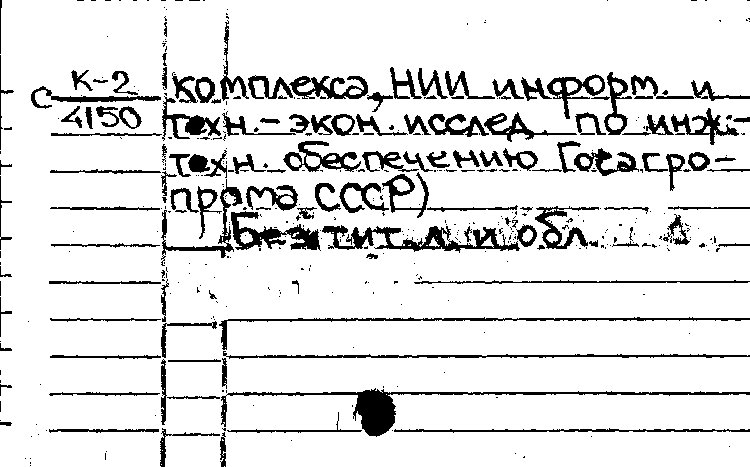 С К-2 комплекса, НИИ информ. и
4150 техн.-экон. исслед. по инж.-
техн. обеспечению Госагро-
прома СССР)
Без тит. л. и обл.